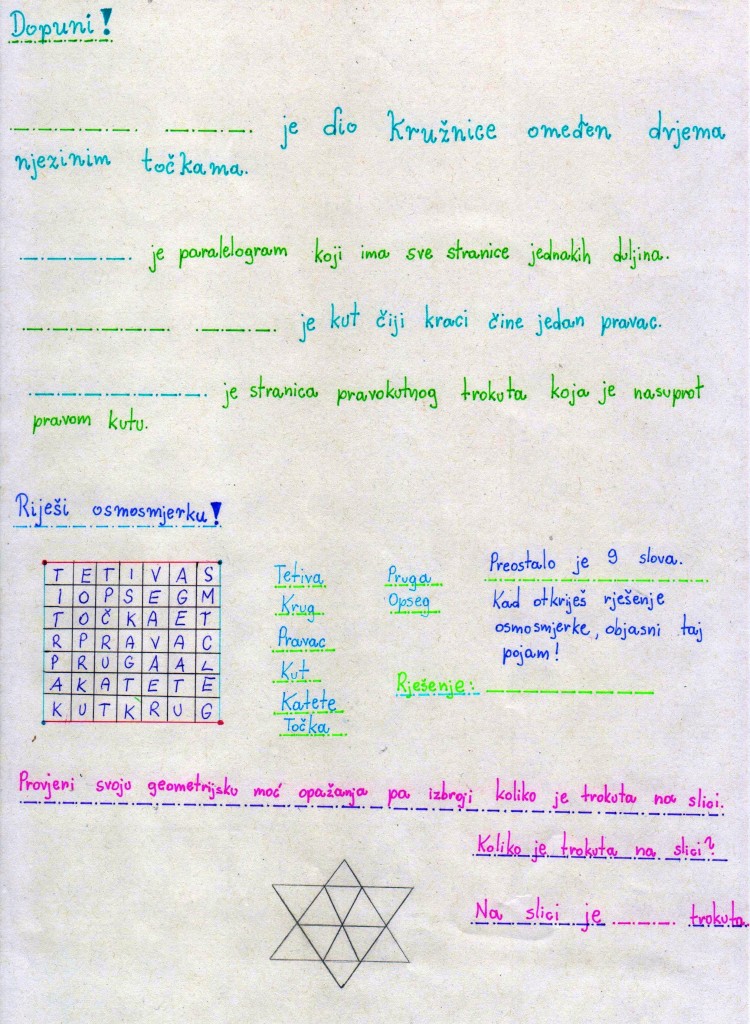 Dopuni!
je dio kružnice omeđen dvjema
njezinim točkama.
je paralelogram koji ima sve stranice jednakih duljina.
je kut čiji kraci čine jedan pravac.
je stranica pravokutnog trokuta koja je nasuprot
pravom kutu.
Riješi osmosmjerku!
T E T I V A S
I O P S E G M
T O Č K A E T
R P R A V A C
P R U G A A L
A K A T E T E
K U T K R U G
Tetiva
Krug
Pravac
Kut
Katete
Točka
Pruga
Opseg
Preostalo je 9 slova.
Kad otkriješ rješenje
osmosmjerke, objasni taj
pojam!
Rješenje:
Provjeri svoju geometrijsku moć opažanja pa izbroji koliko je trokuta na slici.
Koliko je trokuta na slici?
Na slici je trokuta.